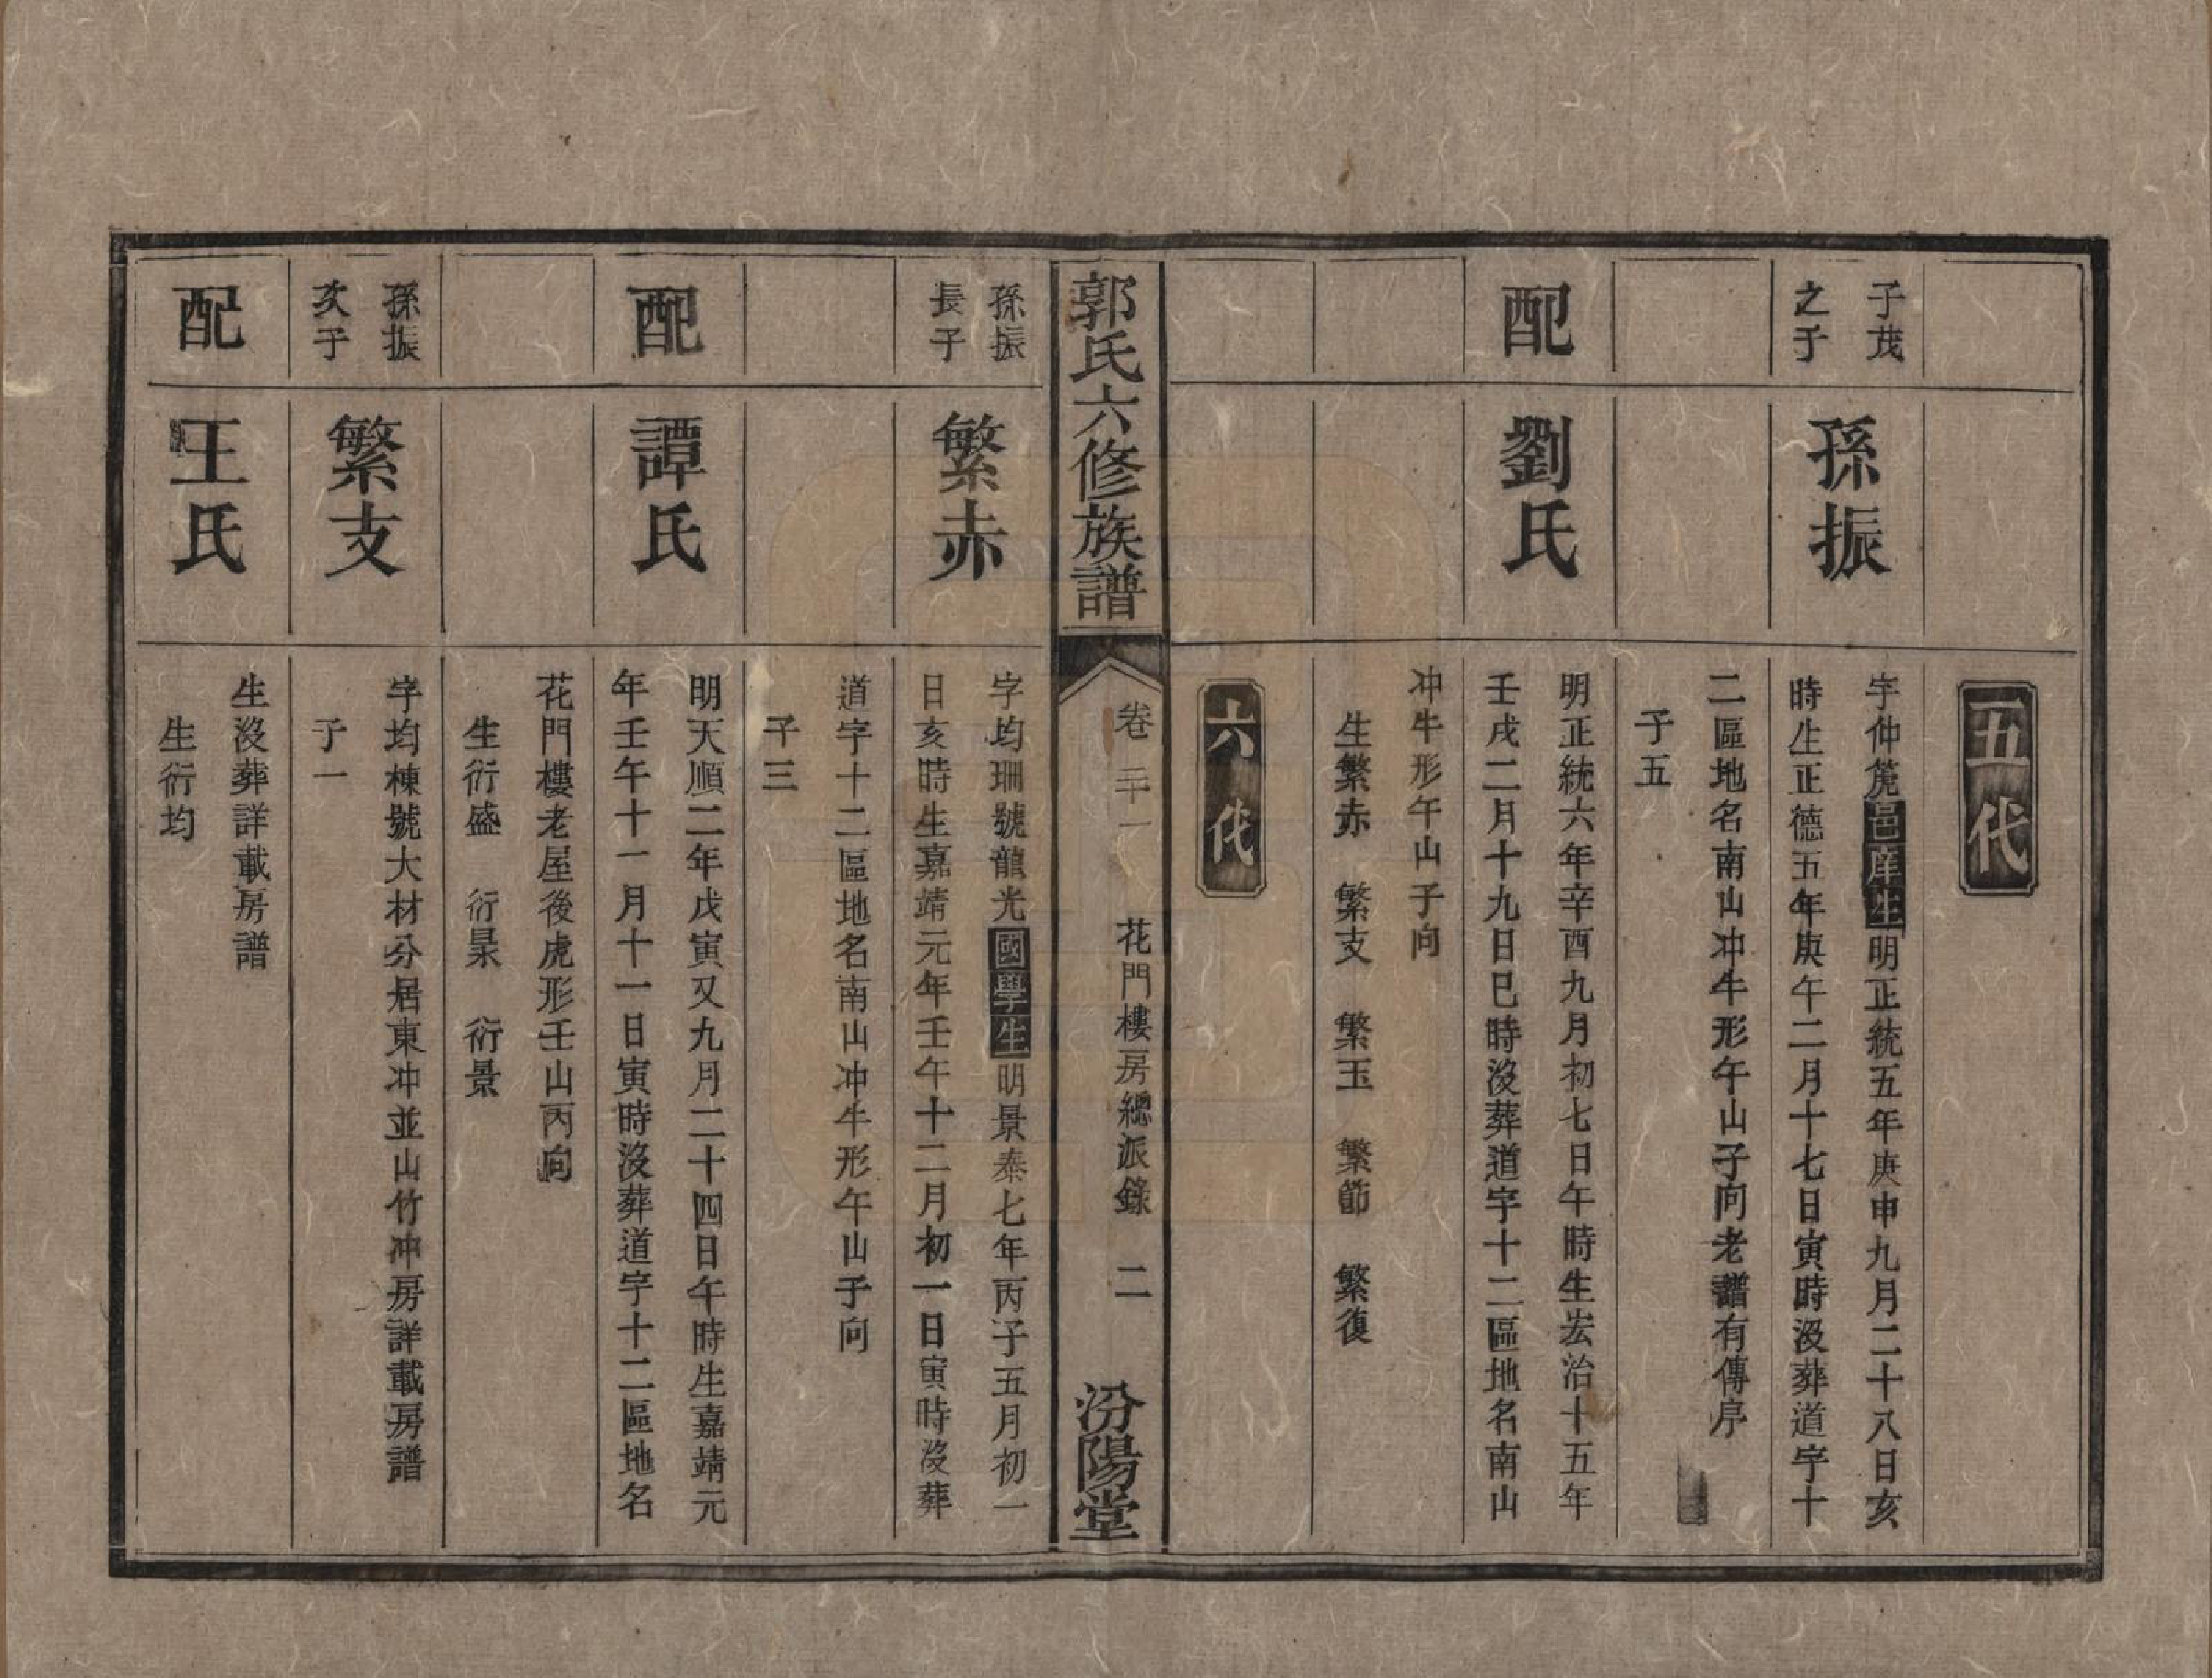 五代
子茂
之子
孫振
字仲箎邑庠生明正統五年庚申九月二十八日亥
時生正德五年庚午二月十七日寅時沒葬道字十
二區地名南山冲牛形午山子向老譜有傳序
子五
配
劉氏
明正統六年辛酉九月初七日午時生宏治十五年
壬戌二月十九日巳時沒葬道字十二區地名南山
冲牛形午山子向
生繁赤 繁支 繁玉 繁節 繁復
六代
郭氏六修族譜
卷三十一 花門樓房總派錄 二
汾陽堂
孫振
長子
繁赤
字均珊號龍光國學生明景泰七年丙子五月初一
日亥時生嘉靖元年壬午十二月初一日寅時沒葬
道字十二區地名南山冲牛形午山子向
子三
配
譚氏
明天順二年戊寅又九月二十四日午時生嘉靖元
年壬午十一月十一日寅時沒葬道字十二區地名
花門樓老屋後虎形壬山丙向
生衍盛 衍杲 衍景
孫振
次子
繁支
字均棟號大材分居東冲並山竹冲房詳載房譜
子一
配
王氏
生沒葬詳載房譜
生衍均